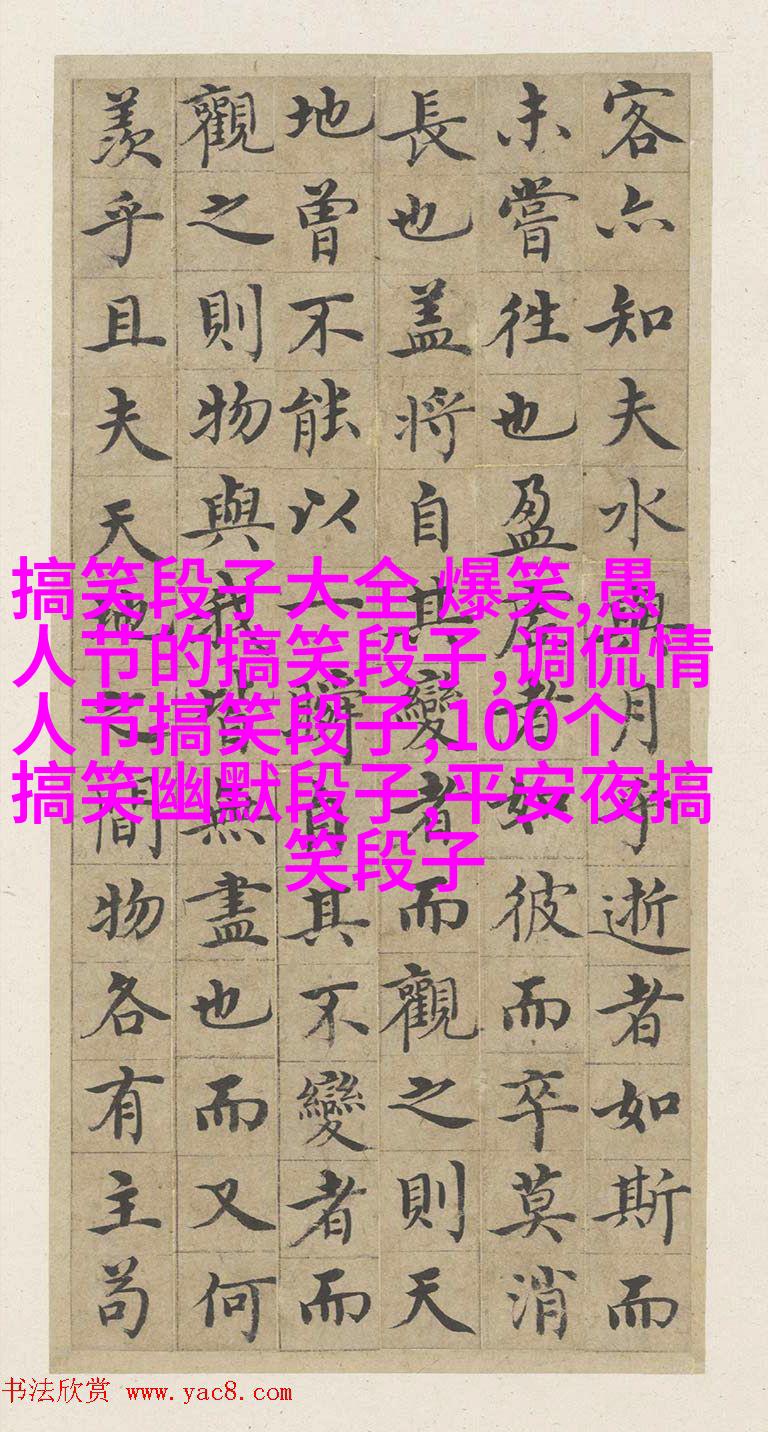 客亦知夫水與月乎逝者如斯而
未嘗往也盈虛者如彼而卒莫消
長也盖將自其變者而觀之則天
地曾不能以一瞬自其不變者而
觀之則物與我皆無盡也而又何
羨乎且夫天地之間物各有主苟
搞笑段子大全 爆笑,愚
人节的搞笑段子,调侃情
人节搞笑段子,100个
搞笑幽默段子,平安夜搞
笑段子
书法欣赏 www.yac8.com